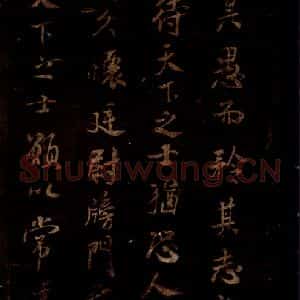 其愚而矜其志
待天下之士猶恐人
懷廷尉牓門
天下之士顧以常
Shufawang.CN